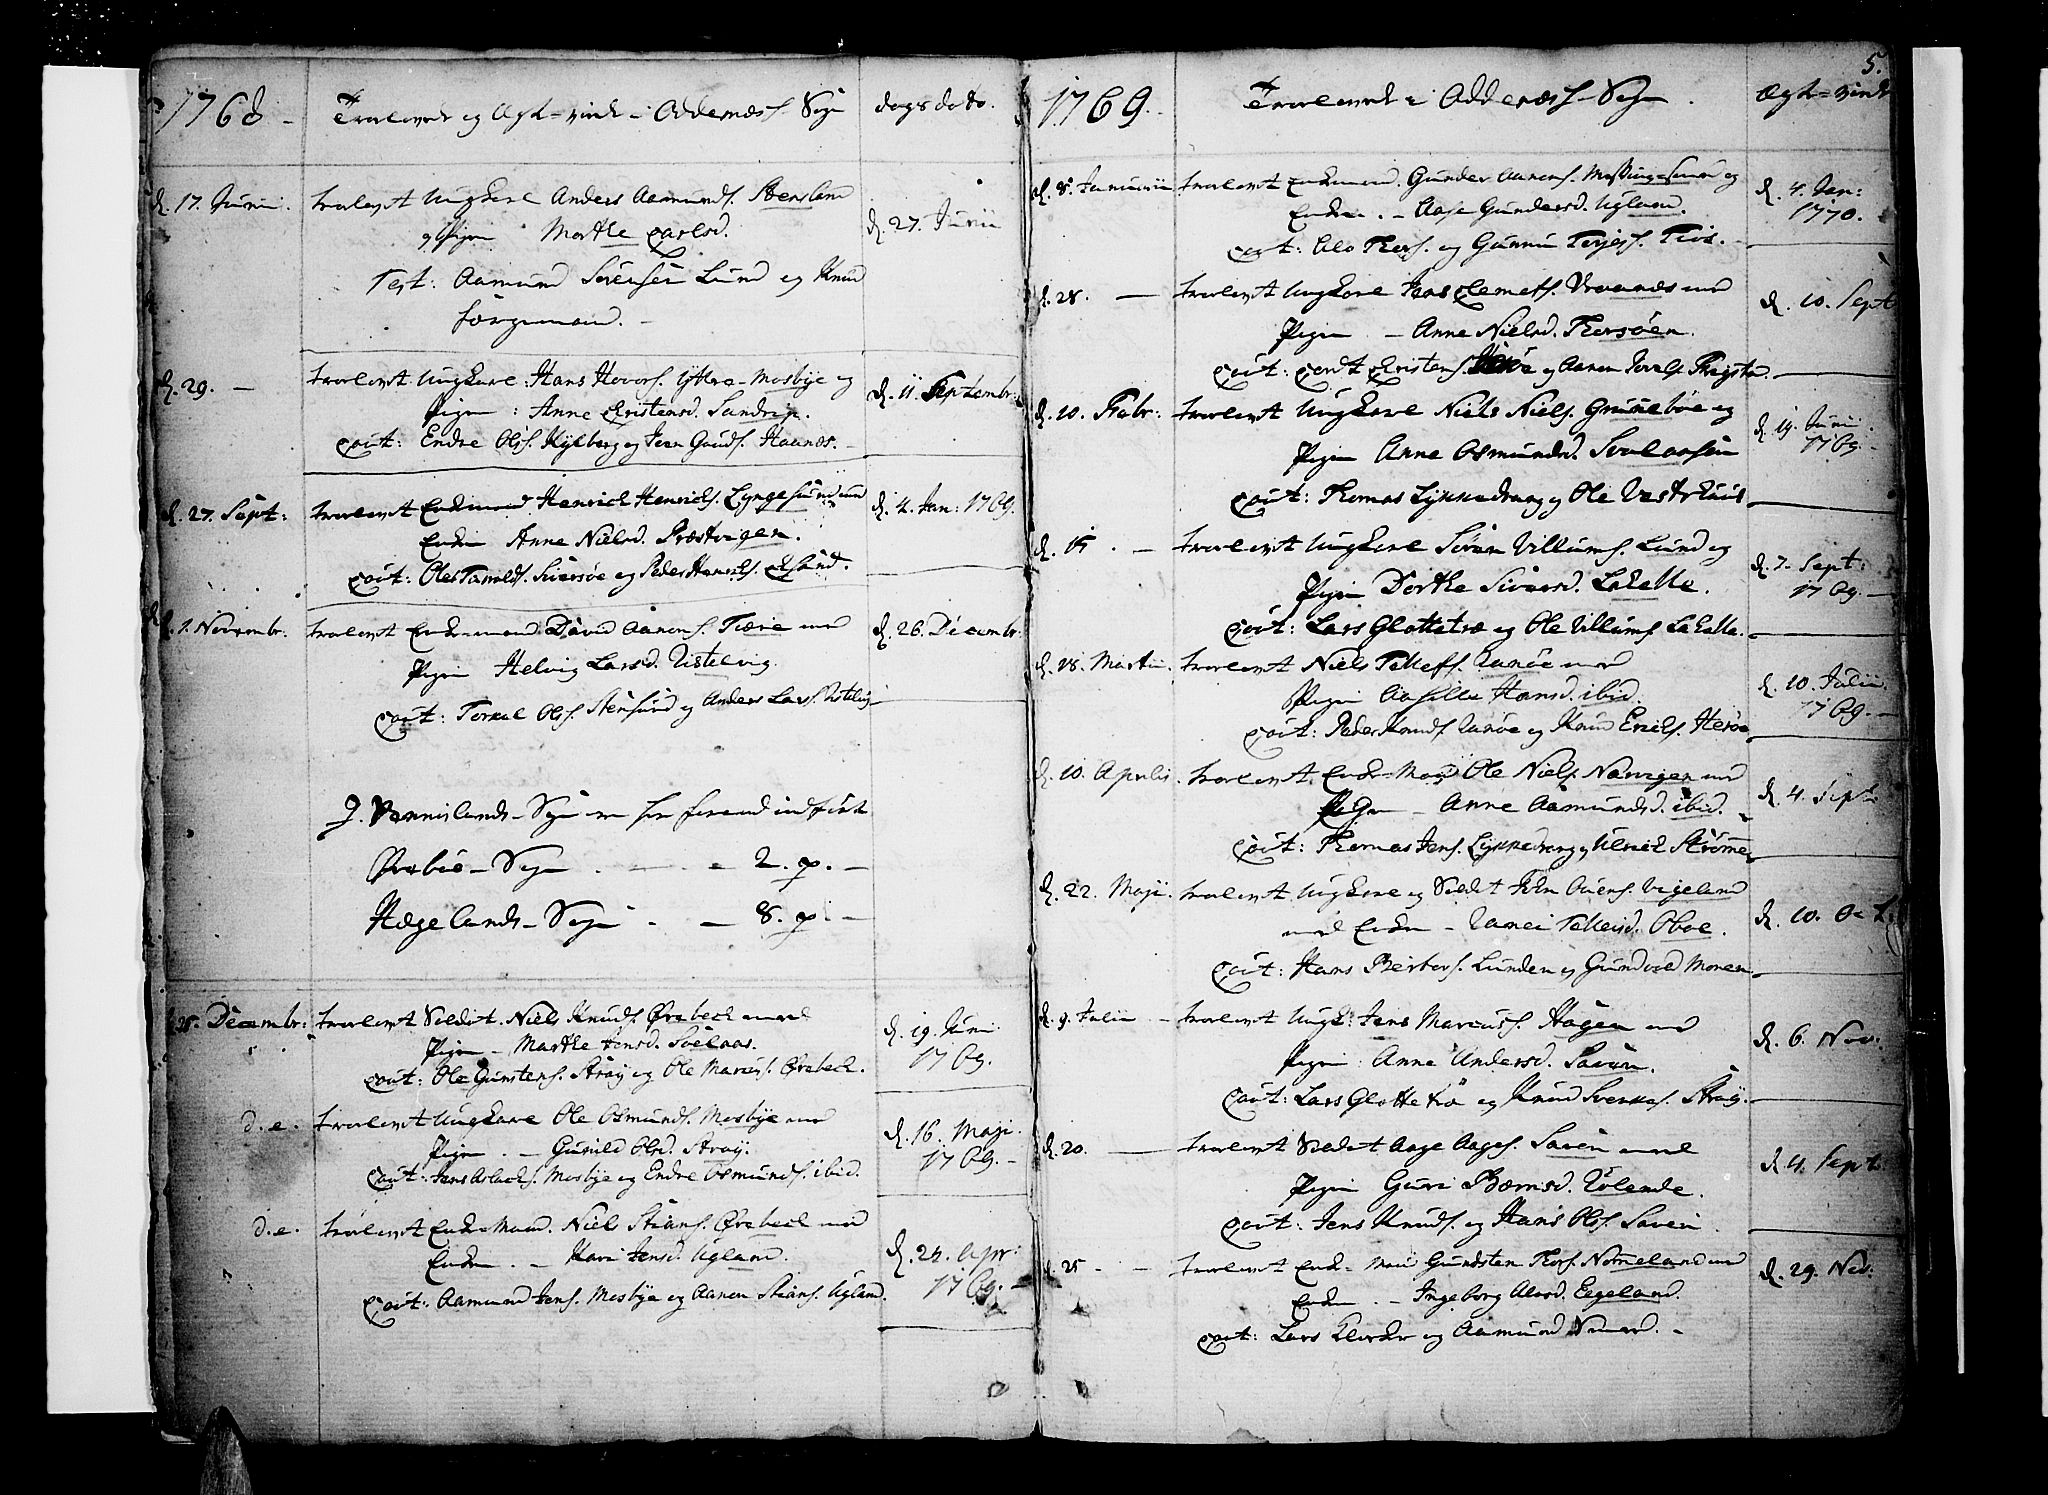 1768
Trolovede og Ægte-viede i Oddernæss Sogn
dags dato.
d. 17. Junii.
trolovet Ungkarl Anders Aamunds. Stensland
og Pigen Marthe Carlsd.
Test: Aamund Sørensen Lund og Knud
Jørgensen.
d. 27. Junii
d. 29. —
trolovet Ungkarl Hans Hovors. Yttre-Mosbye og
Pigen : Anne Cristensd. Sandrip.
Caut: Endre Ols. Kyleberg og Jean Gauds. Haanæs.
d. 11 Septembr:
d. 27. Sept:
trolovet Enkemand Henrich Henrichs. Lyngesund med
Enken Anne Nielsd. Præstvigen.
Caut: Ole Taralds. og Peder Henrichs.
d. 4. Jan: 1769.
d. 1. Novembr:
trolovet Enkemand David Aanens. med
Pigen Helvig Larsd. Vistelvig.
Caut: Torkel Ols. Stensund og Anders Lars. Vistelvig
d. 26. Decembr:
J. Vennislands-Sogn er her forand indført
Øvebøe-Sogn . - - 2. p. -
Hægelands-Sogn . - 8. p. -
Decembr:
trolovet Soldat Niels Knuds. Øvebech med
Pigen - Marthe Jensd. Svelaas.
Caut: Ole Gunstens. Stray og Ole Marcus. Øvebech.
d. 19. Juni
1769.
d. e.
trolovet Ungkarl Ole Osmunds. Mosbye med
Pigen - Gunild Olsd. Stray.
Caut: Jens Aslachs. Mosbye og Endre Osmunds. ibid.
d. 16. Maji.
1769. -
d. e.
trolovet Enke-Mand Niels Stians. Øvebech med
Enken - Kari Jensd. Ugland.
Caut: Aamund Jens. Mosbye og Aanen Stians. Ugland.
d. 24. Apr:
1769. -
5.
1769.
Trolovede i Oddernæss-Sogn.
Ægte-viede
d. 8. Januarii
trolovet Enkemand. Gunder Aanens. og
Enken - Aase Gundersd. Ugland.
Caut: Ole Thors. og Gunnu Terjes.
d. 4. Jan:
1770.
d. 28. —
trolovet Ungkarl Jens Clemets. med
Pigen - Anne Nielsd. Thorsøen.
Caut: Cristens. og Aanen
d. 10. Sept
d. 10. Febr:
trolovet Ungkarl Niels Niels. Grunebøe og
Pigen Anne Osmundsd.
Caut: Thomas Lykkedrang og Ole Vestrhuus
d. 19. Junii.
1769. -
d. 15. —
trolovet Ungkarl Søren Villums. Lund og
Pigen Dorthe Siversd. Lahelle.
Caut: Lars Glottetræ og Ole Villums. Lahelle.
d. 7. Sept:
1769. -
d. 28. Martii.
trolovet Niels Tellefs. Ranøe med
Pigen Hansd. ibid.
Caut: Peder Knuds. Ranøe og Knud Erichs. Herøe
d. 10. Julii.
1769. -
d. 10. Aprilis.
trolovet Enke-Mand Ole Niels. Narvigen med
Pigen - Anne Aamundsd. ibid.
Caut: Thomas Jens. Lykkedrang og Ulrich Strømme
d. 4. Sept:
d. 22. Maji.
trolovet Ungkarl og Soldat John Ouens. Vigeland
med Enken - Tellefsd. Oboe.
Caut: Hans Lunden og Gundvald Moren
d. 10. Oct.
d. 9. Julii -
trolovet Ungk: Jens Marcuss. Hagen med
Pigen Anne Andersd. Saven.
Caut: Lars Glottetrø og Knud Svenkes. Stray.
d. 6. Nov:
d. 20. —
trolovet Soldat Aage Aages. Saven med
Pigen Guri Biørnsd.
Caut. Jens Knuds. og Hans Ols. Saven.
d. 4. Sept:
d. 25 - -
trolovet Enke-Man Gundsten Thors. Nomeland med
Enken - Ingeborg Alesd. Eegeland.
Caut: Lars Klocker og Aamund
d. 29. Nov: